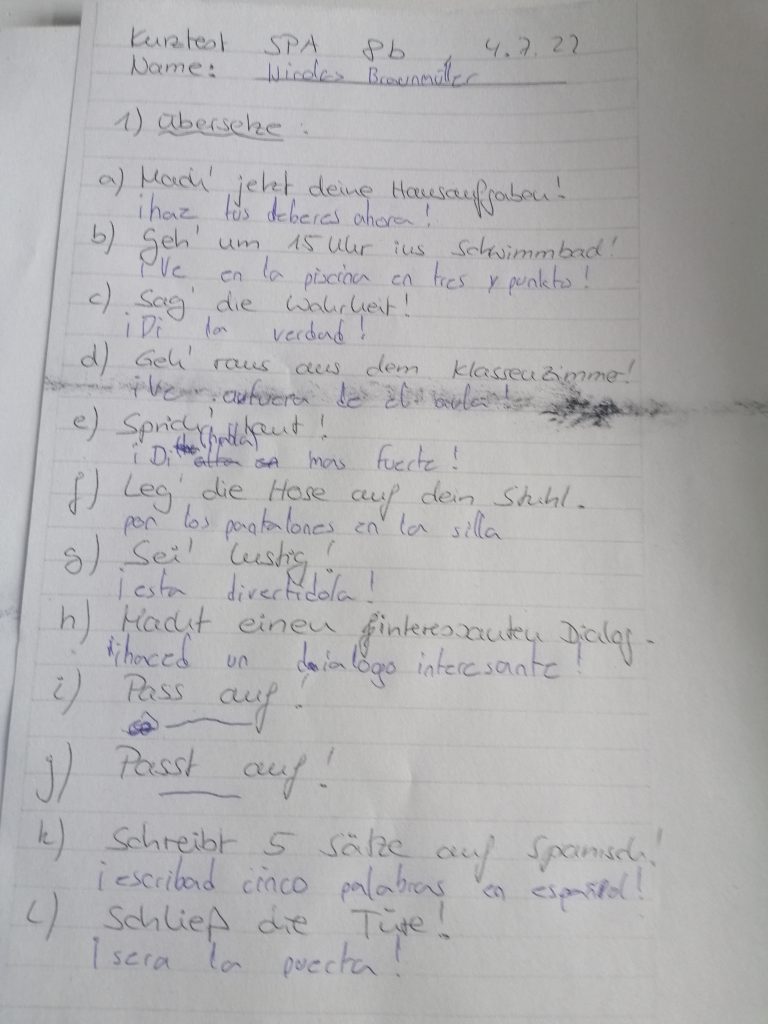 Kurztest SPA 8b, 4.7.22
Name: Braunmüller
1) Übersetze:
a) Mach' jetzt deine Hausaufgaben!
¡haz tus deberes ahora!
b) Geh' um 15 Uhr ins Schwimmbad!
¡Ve en la piscina en tres y punkto!
c) Sag' die Wahrheit!
¡Di la verdad!
d) Geh' raus aus dem Klassenzimmer!
¡Ve afuera de el aula!
e) Sprich' laut!
¡Di mas fuerte!
f) Leg' die Hose auf dein Stuhl.
pon los pantalones en la silla
g) Sei' lustig!
¡esta divertidola!
h) Macht einen interessanten Dialog.
¡haced un dialogo interesante!
i) Pass auf!
j) Passt auf!
k) Schreibt 5 Sätze auf Spanisch!
¡escribad cinco palabras en español!
l) Schließ die Türe!
¡sera la puerta!